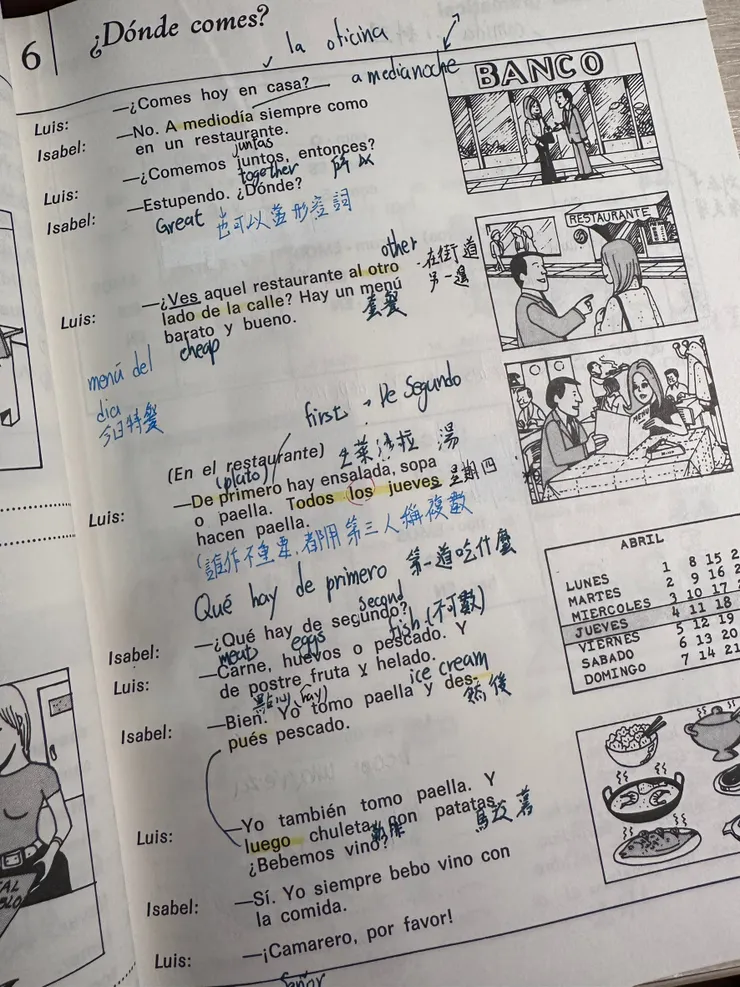 6
¿Dónde comes?
la oficina
a medianoche
Luis: —¿Comes hoy en casa?
Isabel: —No. A mediodía siempre como
en un restaurante.
juntas
Luis: —¿Comemos juntos, entonces?
together 所以
Isabel: —Estupendo. ¿Dónde?
Great 也可以當形容詞
other
Luis: —¿Ves aquel restaurante al otro
在街道
lado de la calle? Hay un menú
另一邊
barato y bueno.
套餐
cheap
menú del
dia
今日特餐
first → De Segundo
(En el restaurante)
生菜沙拉 湯
(plato)
Luis: —De primero hay ensalada, sopa
o paella. Todos los jueves
星期四
hacen paella.
(誰作不重要,都用第三人稱複數
Qué hay de primero 第一道吃什麼
second
Isabel: —¿Qué hay de segundo?
meat eggs fish (不可數)
Luis: —Carne, huevos o pescado. Y
de postre fruta y helado.
點心 hay) ice cream
Isabel: —Bien. Yo tomo paella y des-
然後
pués pescado.
Luis: —Yo también tomo paella. Y
luego chuleta con patatas.
馬鈴薯
¿Bebemos vino?
Isabel: —Sí. Yo siempre bebo vino con
la comida.
Luis: —¡Camarero, por favor!
Señor
BANCO
RESTAURANTE
MENU
ABRIL
LUNES 1 8 15
MARTES 2 9 16
MIERCOLES 3 10 17
JUEVES 4 11 18
VIERNES 5 12 19
SABADO 6 13 20
DOMINGO 7 14 21